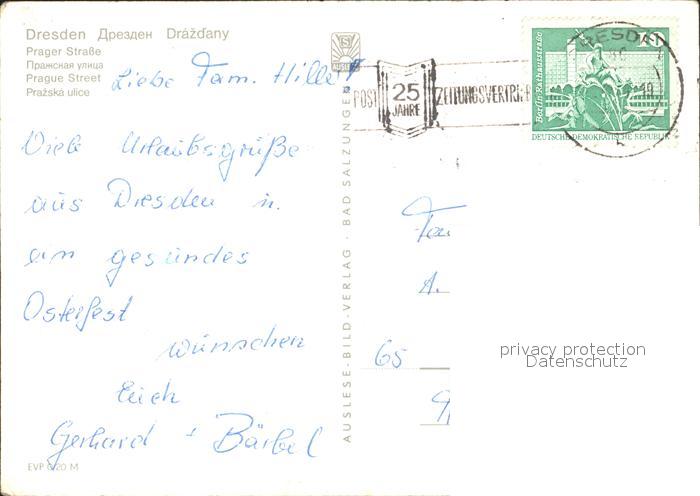 Dresden Дрезден Drážďany
Prager Straße
Пражская улица
Prague Street
Pražská ulice
Liebe Fam. Hiller!
Viele Urlaubsgrüße
aus Dresden u.
ein gesundes
Osterfest
wünschen
Euch
Gerhard + Bärbel
EVP 0,20 M
AUSLESE-BILD-VERLAG · BAD SALZUNGEN
POST
25
JAHRE
ZEITUNGSVERTRIEB
DRESDEN
Berlin, Rathausstraße
10
DEUTSCHE DEMOKRATISCHE REPUBLIK
65
privacy protection
Datenschutz